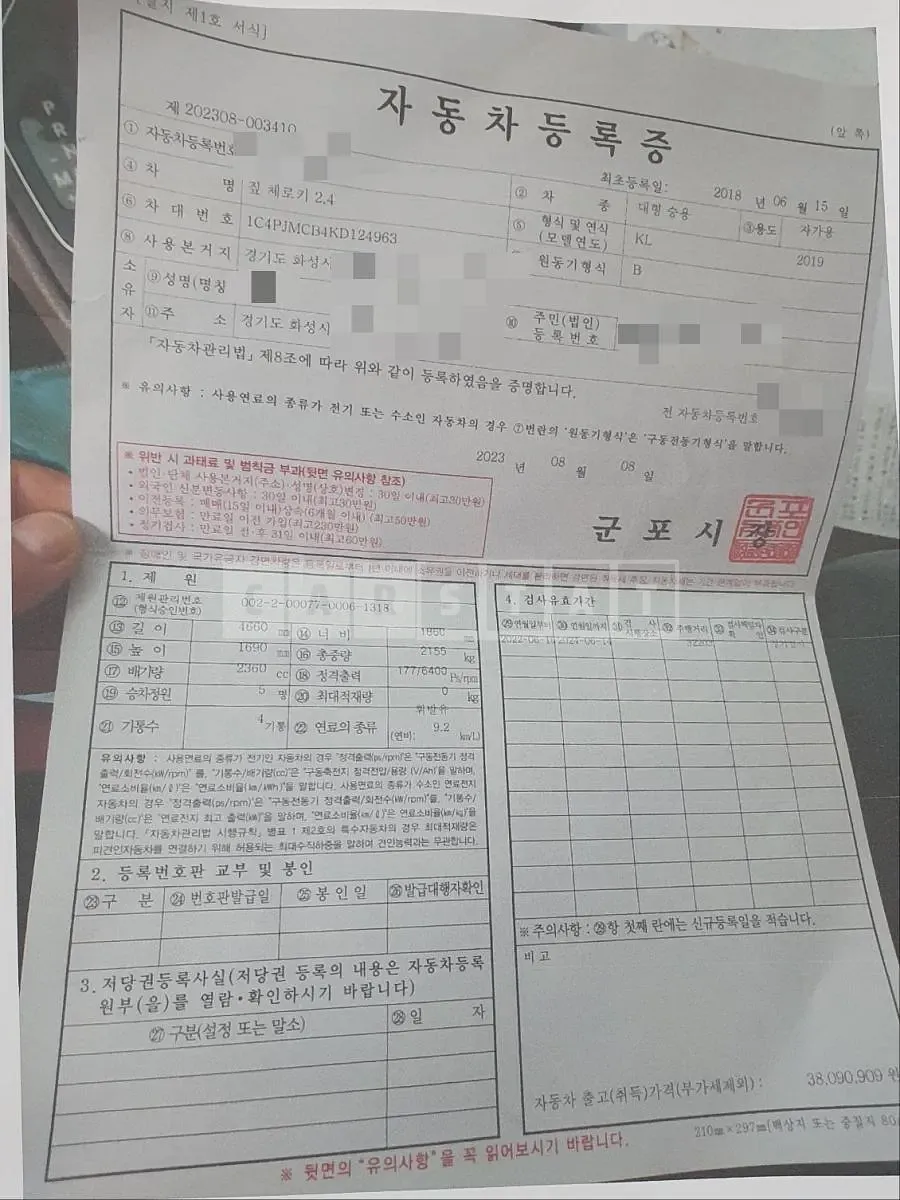 제1호 서식]
자동차등록증
(앞 쪽)
제 202308-003410
최초등록일: 2018 년 06 월 15 일
① 자동차등록번호
② 차 종 대형 승용 ③용도 자가용
④ 차 명 짚 체로키 2.4
⑤ 형식 및 연식 (모델연도) KL 2019
⑥ 차 대 번 호 1C4PJMCB4KD124963
원동기형식 B
⑧ 사용본거지 경기도 화성시
소유자 ⑨성명(명칭
⑩ 주민(법인)등록번호
⑪주 소 경기도 화성시
「자동차관리법」 제8조에 따라 위와 같이 등록하였음을 증명합니다.
전 자동차등록번호
※ 유의사항 : 사용연료의 종류가 전기 또는 수소인 자동차의 경우 ⑦번란의 '원동기형식'은 '구동전동기형식'을 말합니다.
2023 년 08 월 08 일
※ 위반 시 과태료 및 범칙금 부과(뒷면 유의사항 참조)
• 법인·단체 사용본거지(주소)·성명(상호)변경 : 30일 이내(최고30만원)
• 외국인 신분변동사항 : 30일 이내(최고30만원)
• 이전등록 : 매매(15일 이내)상속(6개월 이내) (최고50만원)
• 의무보험 : 만료일 이전 가입(최고230만원)
• 정기검사 : 만료일 전·후 31일 이내(최고60만원)
군 포 시 장
CARSEAT
1. 제 원
⑫ 제원관리번호 (형식승인번호) 002-2-00077-0006-1318
⑬ 길 이 4660 mm ⑭ 너 비 1860 mm
⑮ 높 이 1690 mm ⑯ 총중량 2155 kg
⑰ 배기량 2360 cc ⑱ 정격출력 177/6400 Ps/rpm
⑲ 승차정원 5 명 ⑳ 최대적재량 0 kg
㉑ 기통수 4기통 ㉒ 연료의 종류 휘발유 (연비: 9.2 km/L)
유의사항 : 사용연료의 종류가 전기인 자동차의 경우 "정격출력(ps/rpm)"은 "구동전동기 정격
출력/회전수(kW/rpm)" 를, "기통수/배기량(cc)"은 "구동축전지 정격전압/용량 (V/Ah)"을 말하며,
"연료소비율(km/ℓ)"은 "연료소비율(km/kWh)"을 말합니다. 사용연료의 종류가 수소인 연료전지
자동차의 경우 "정격출력(ps/rpm)"은 "구동전동기 정격출력/회전수(kW/rpm)"를, "기통수/
배기량(cc)"은 "연료전지 최고 출력(kW)"을 말하며, "연료소비율(km/ℓ)"은 연료소비율(km/kg)"을
말합니다. 「자동차관리법 시행규칙」 별표 1 제2호의 특수자동차의 경우 최대적재량은
피견인자동차를 연결하기 위해 허용되는 최대수직하중을 말하며 견인능력과는 무관합니다.
2. 등록번호판 교부 및 봉인
㉓구 분 ㉔ 번호판발급일 ㉕봉 인 일 ㉖발급대행자확인
3. 저당권등록사실(저당권 등록의 내용은 자동차등록
원부(을)를 열람·확인하시기 바랍니다)
㉗구분(설정 또는 말소) ㉘일 자
4. 검사유효기간
㉙연월일부터 ㉚연월일까지 ㉛검 사 시행장소 ㉜주행거리 ㉝검사책임자 확 인 ㉞검사구분
※주의사항 : ㉙항 첫째 란에는 신규등록일을 적습니다.
비 고
자동차 출고(취득)가격(부가세제외) : 38,090,909 원
210㎜×297㎜[백상지 또는 중질지 80
※ 뒷면의 "유의사항"을 꼭 읽어보시기 바랍니다.